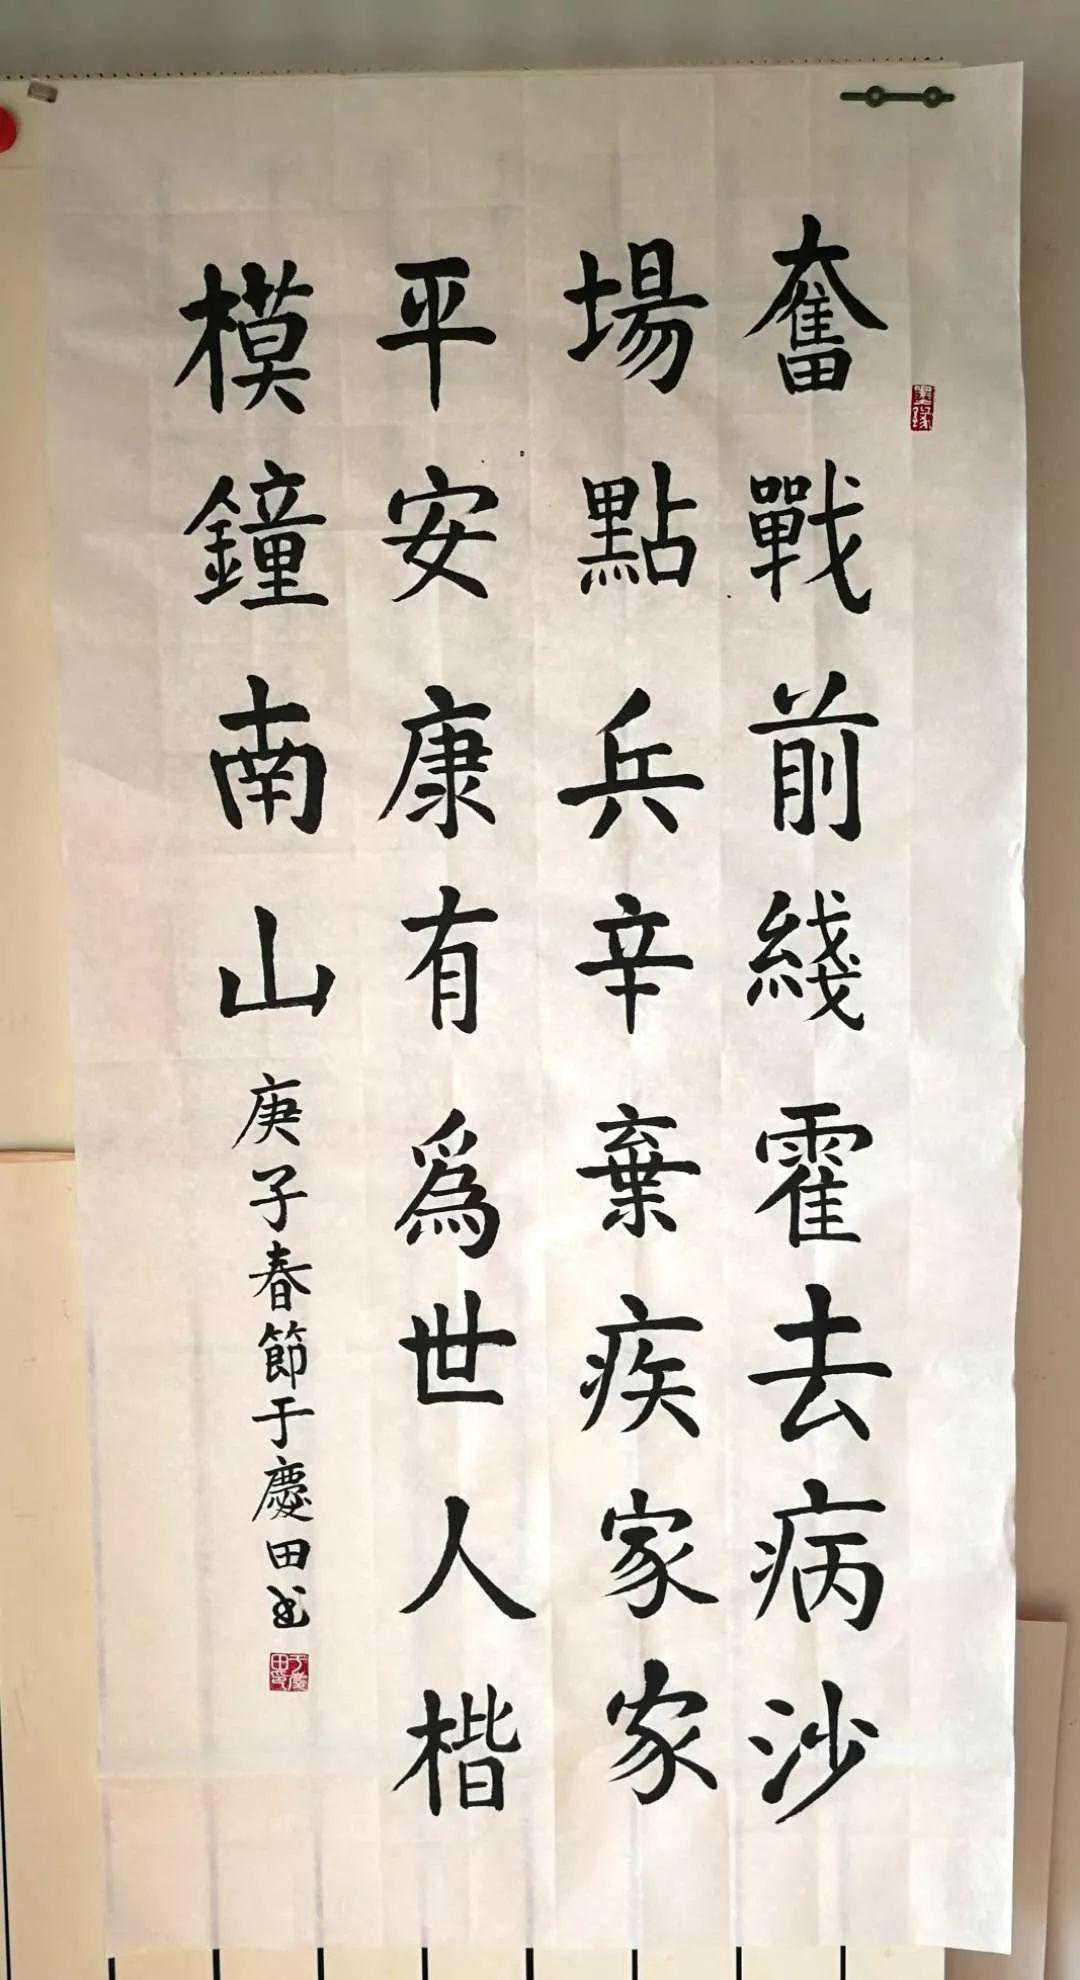 奮戰前綫霍去病沙
場點兵辛棄疾家家
平安康有爲世人楷
模鐘南山
庚子春節于慶田书